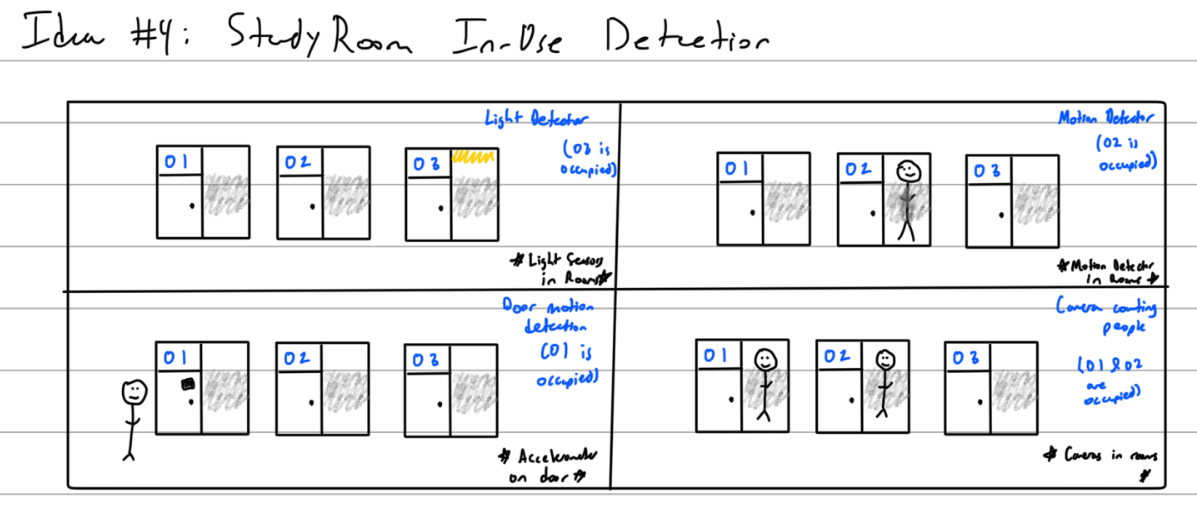 Idea #4: Study Room In-Use Detection
Light Detector
(03 is
occupied)
01
02
03
*Light Sensors
in Rooms*
Motion Detector
(02 is
occupied)
01
02
03
*Motion Detector
in Rooms*
Door motion
detection
(01 is
occupied)
01
02
03
*Accelerometer
on door*
Camera counting
people
(01 & 02
are
occupied)
01
02
03
*Cameras in rooms
*